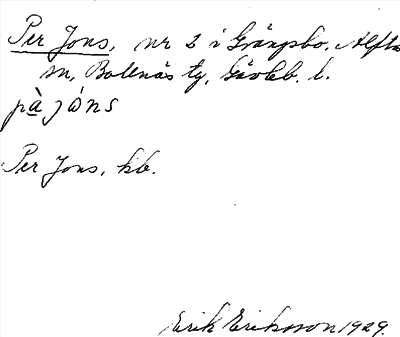 Per Jons, nr 2 i Grängsbo, Alfta
sn, Bollnäs tg, Gävleb. l.
pà jóns
Per Jons, kb.
Erik Eriksson 1929.